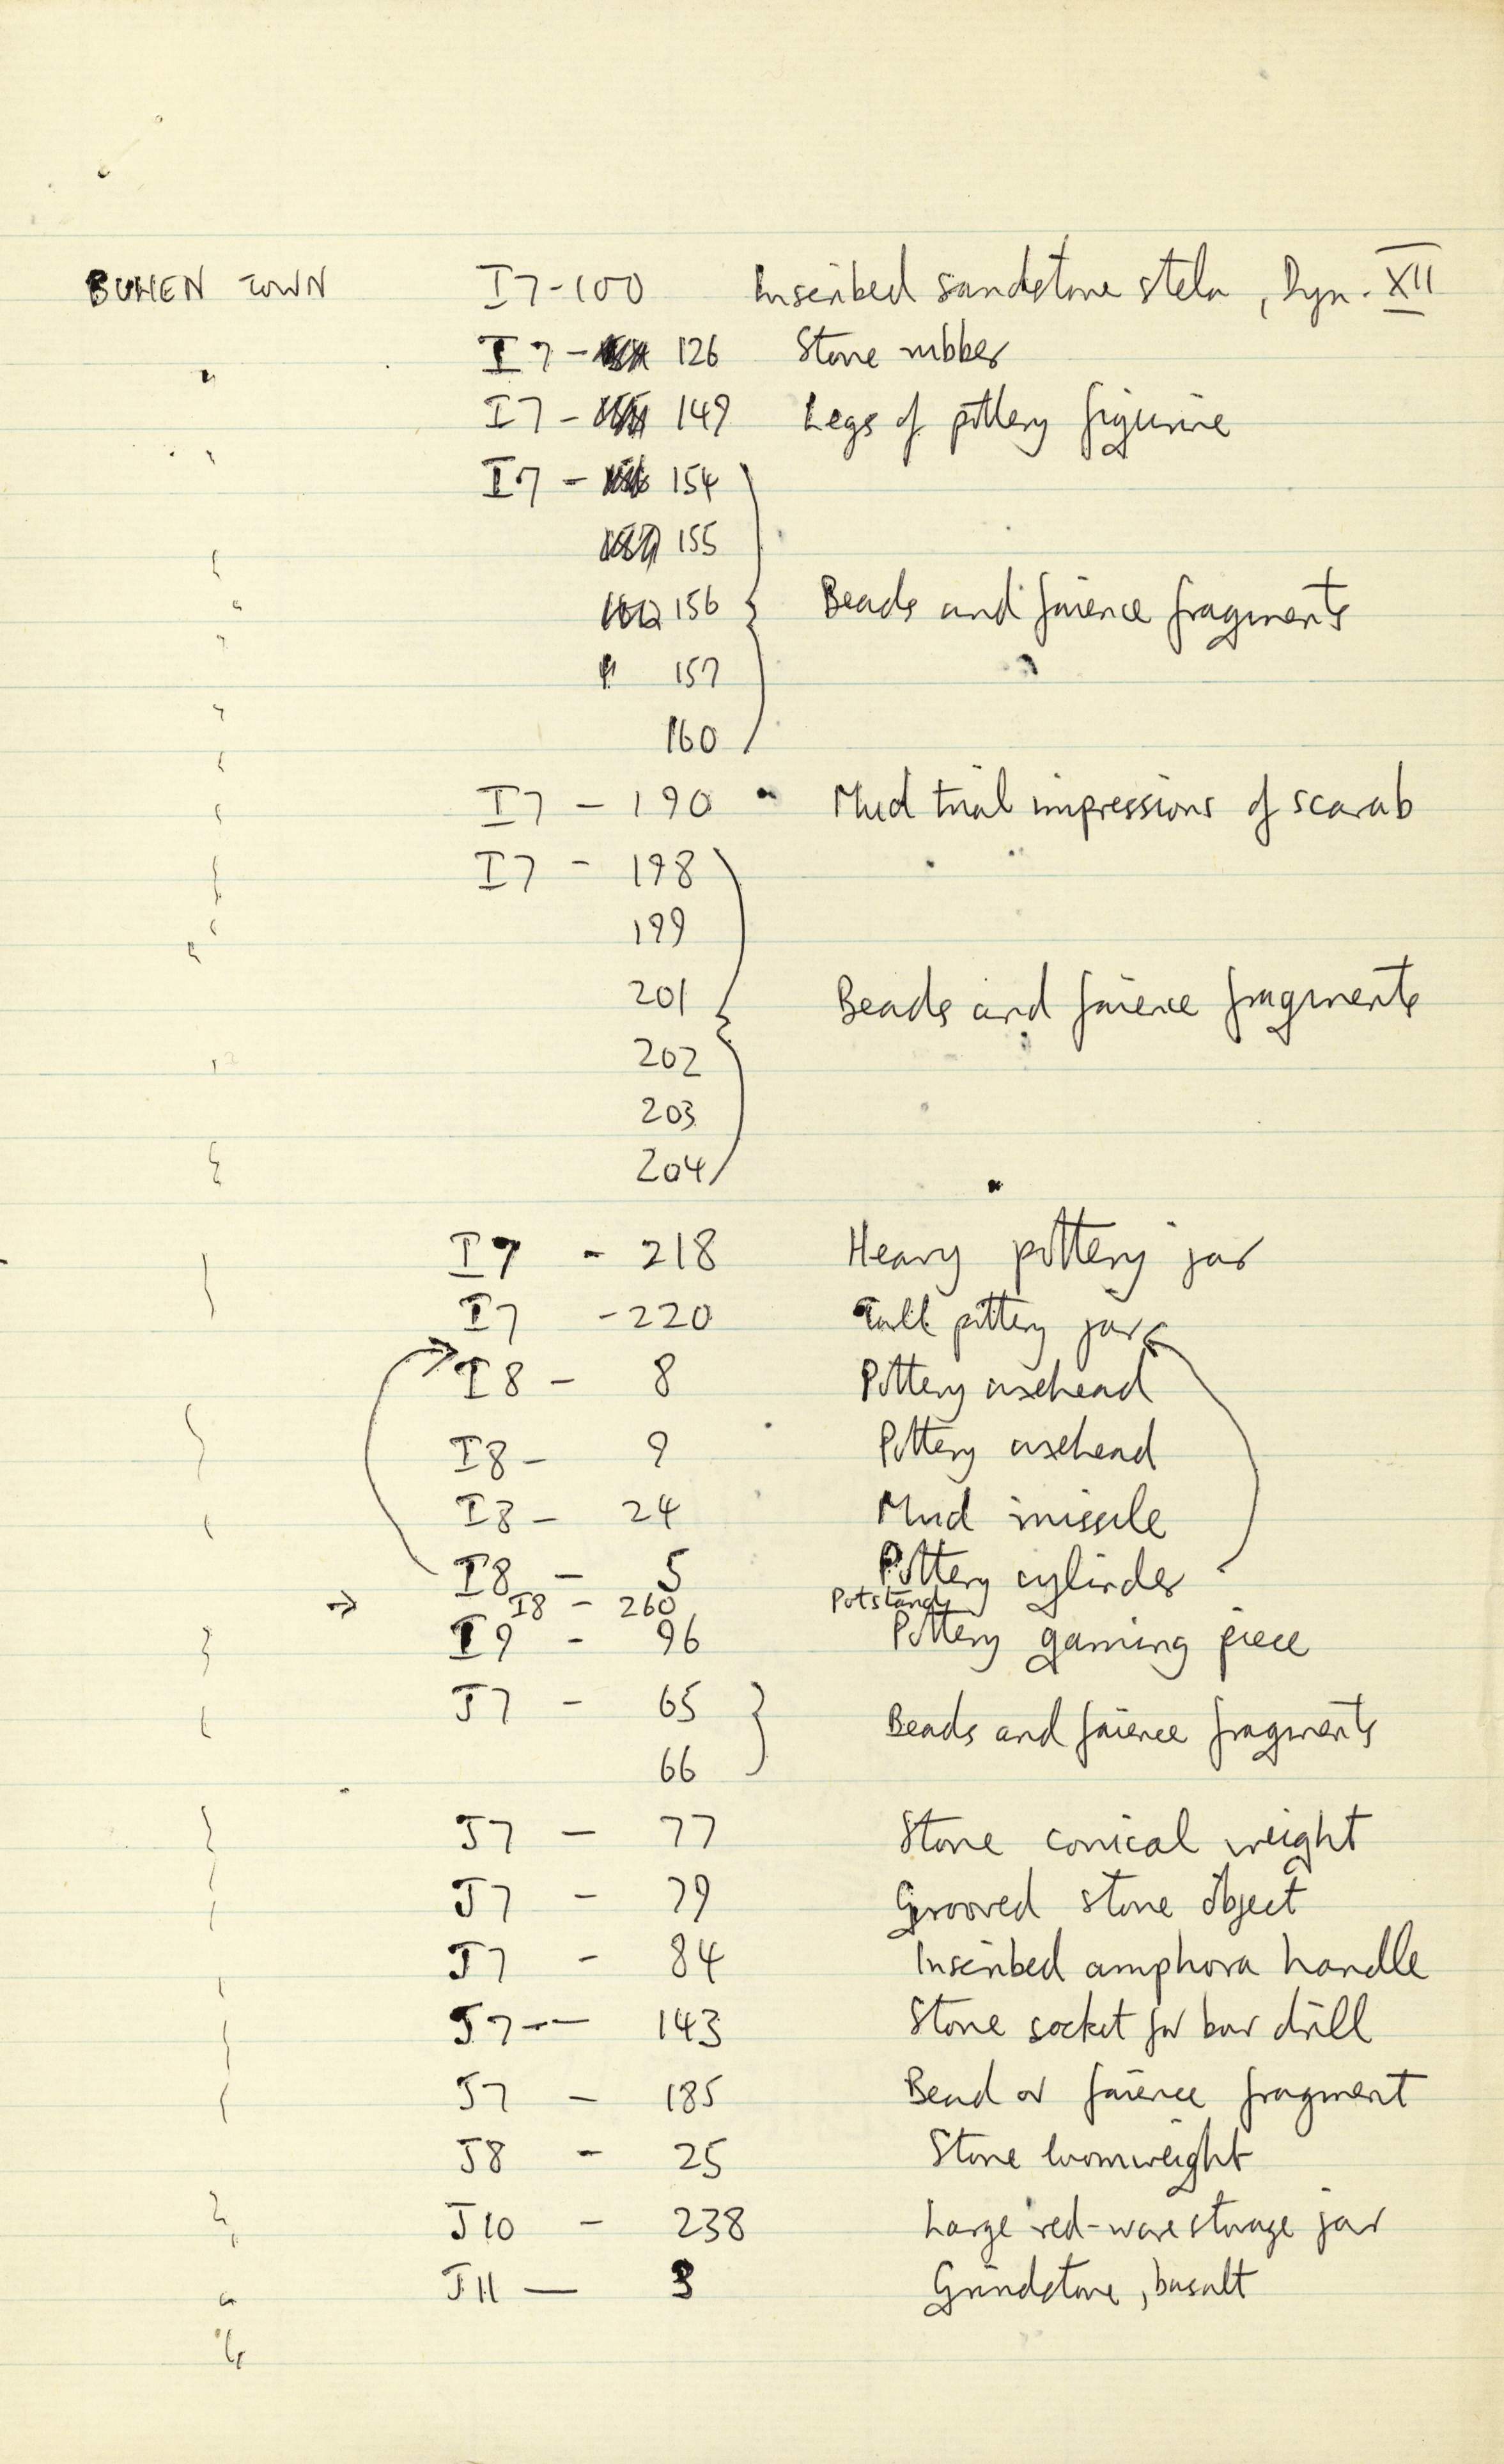 BUHEN TOWN I7-100 Inscribed sandstone stela, Dyn. XII
" I7 - 126 Stone rubber
I7 - 149 Legs of pottery figurine
I7 - 154
155
156 Beads and faience fragments
" 157
160
I7 - 190 Mud trial impressions of scarab
I7 - 198
199
201 Beads and faience fragments
202
203
204
I7 - 218 Heavy pottery jar
I7 - 220 Tall pottery jar
I8 - 8 Pottery axehead
I8 - 9 Pottery axehead
I8 - 24 Mud missile
I8 - 5 Pottery cylinder
→ I8 - 260 Potstand
I9 - 96 Pottery gaming piece
J7 - 65 Beads and faience fragments
66
J7 - 77 Stone conical weight
J7 - 79 Grooved stone object
J7 - 84 Inscribed amphora handle
J7 -- 143 Stone socket for bow drill
J7 - 185 Bead or faience fragment
J8 - 25 Stone loomweight
J10 - 238 Large red-ware storage jar
J11 - 3 Grindstone, basalt